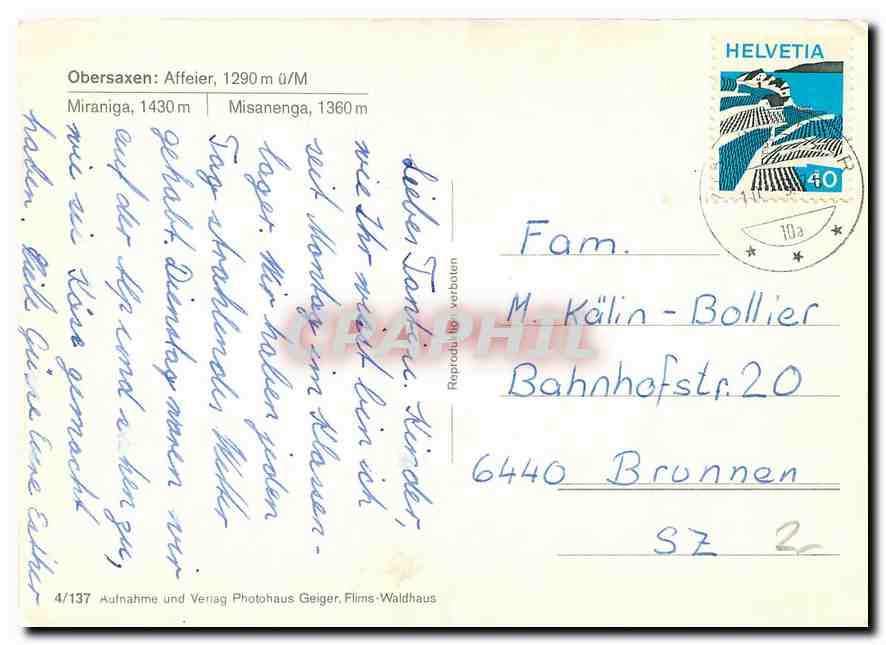 Obersaxen: Affeier, 1290 m ü/M
Miraniga, 1430 m | Misanenga, 1360 m
HELVETIA
40
10a
Liebe Kinder,
wie Ihr wisst bin ich
seit Montag im Klassen-
lager. Wir haben jeden
Tag strahlendes Wetter
gehabt. Dienstag waren wir
auf der Alp und sahen zu,
wie sie Käse gemacht
haben. Viele Grüsse Eure Esther
Reproduktion verboten
Fam.
M. Kälin-Bollier
Bahnhofstr. 20
6440 Brunnen
SZ
2.-
4/137 Aufnahme und Verlag Photohaus Geiger, Flims-Waldhaus
CPAPHIL